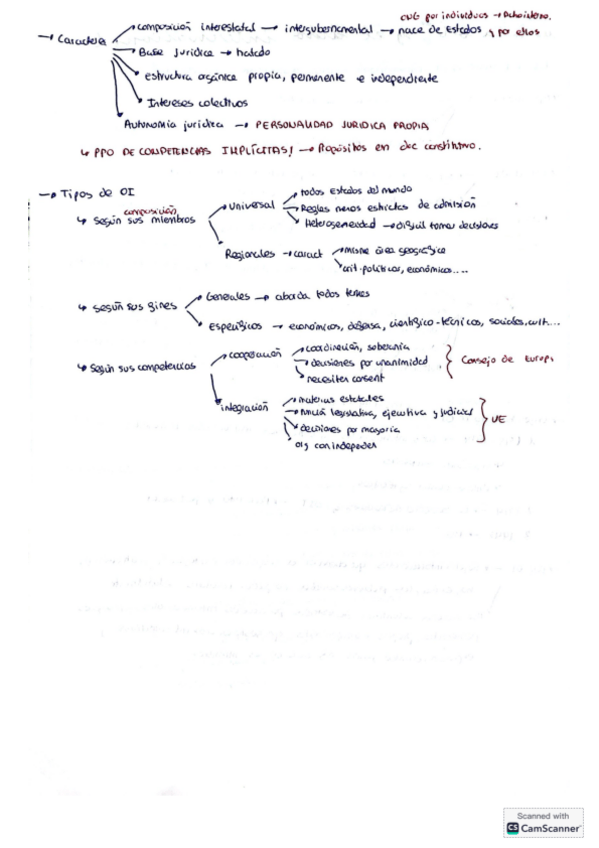 ONG por individuos → Dcho interno.
→ Caracteres
composición interestatal → intergubernamental → nace de Estados y por ellos
Base jurídica → tratado
estructura orgánica propia, permanente e independiente
Intereses colectivos
Autonomía jurídica → PERSONALIDAD JURIDICA PROPIA
↳ PPO DE COMPETENCIAS IMPLÍCITAS! → Propósitos en doc constitutivo.
→ Tipos de OI
↳ Según sus miembros
composición
Universal
todos estados del mundo
Reglas menos estrictas de admisión
Heterogeneidad → difícil tomar decisiones
Regionales → caract
misma área geográfica
crit. políticos, económicos....
↳ según sus fines
Generales → aborda todos temas
Específicos → económicos, defensa, científico-técnicos, sociales, cult...
↳ Según sus competencias
cooperación
coordinación, soberanía
decisiones por unanimidad
necesitan consent
Consejo de Europ
integración
materias estatales
legislativa, ejecutiva y judicial
decisiones por mayoría
org con indepeden
UE
Scanned with
CS CamScanner